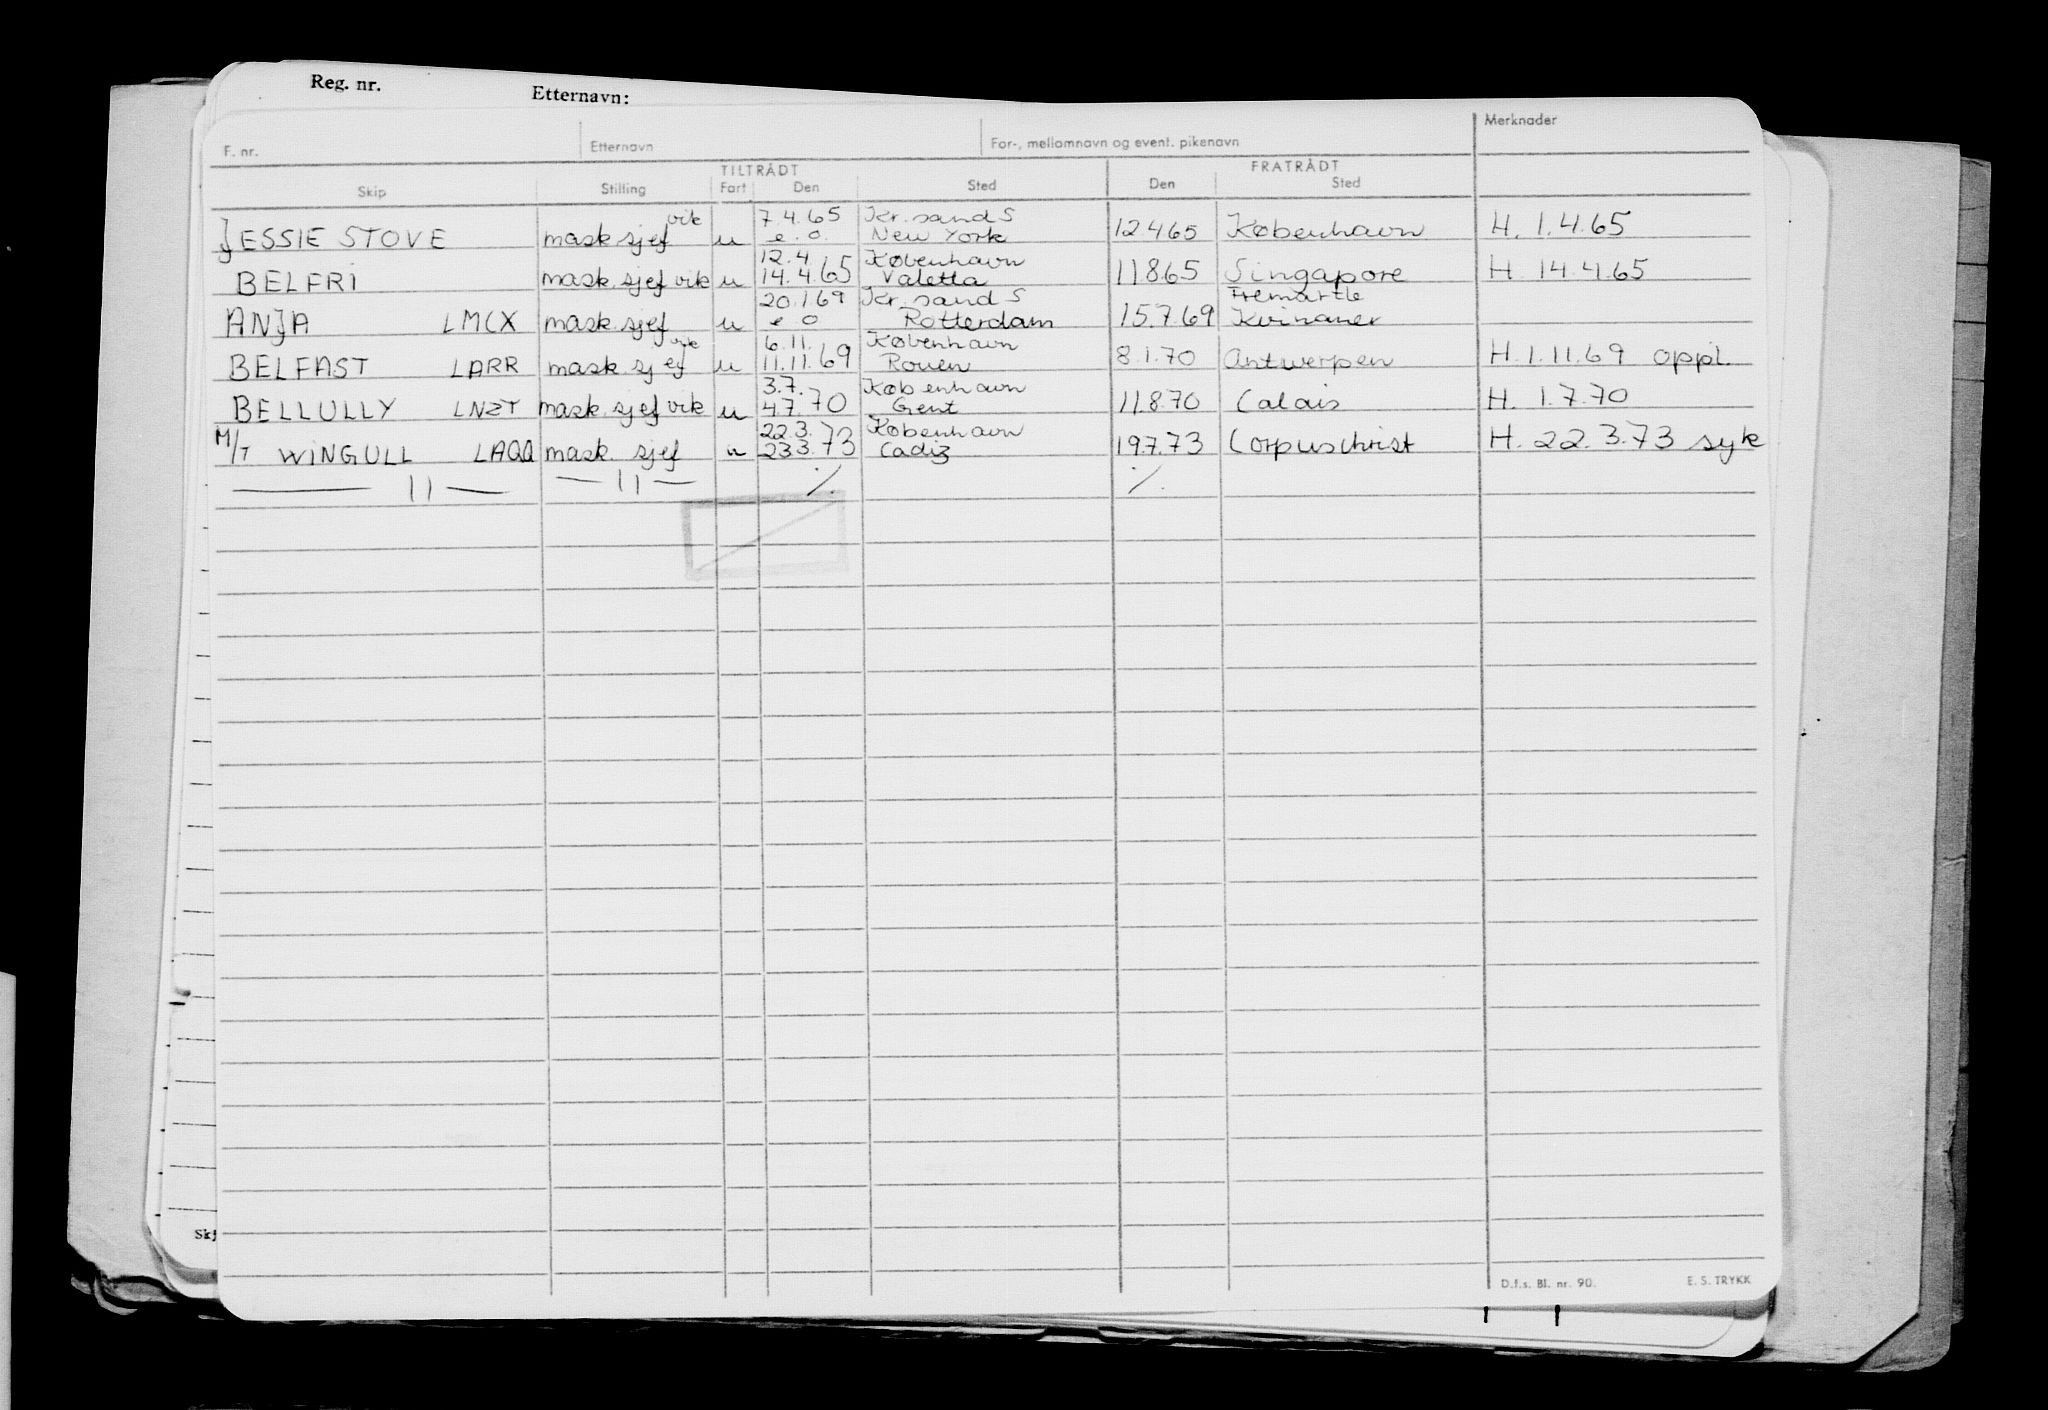 Reg. nr. Etternavn:
F. nr. Etternavn For-, mellomnavn og event. pikenavn Merknader
TILTRÅDT FRATRÅDT
Skip Stilling Fart Den Sted Den Sted
vik 7.4.65 Kr.sand S
JESSIE STOVE mask.sjef u e.o. New York 12465 København H. 1.4.65
12.4 København
BELFRI mask.sjef vik u 14.4.65 Valetta 11865 Singapore H. 14.4.65
20.1.69 Kr.sand S Fremantle
ANJA LMCX mask.sjef u e o Rotterdam 15.7.69
vik 6.11. København
BELFAST LARR mask.sjef u 11.11.69 Rouen 8.1.70 Antwerpen H.1.11.69 oppl.
3.7. København
BELLULLY LNZT mask.sjef vik u 4.7.70 Gent 11.8.70 Calais H. 1.7.70
M/T 22.3. København
WINGULL LAQQ mask. sjef u 233.73 Cadiz 19.7.73 Corpuschrist H. 22.3.73 syk
— 11 — — 11 — ⁒ ⁒
Skj
D.f.s. Bl. nr. 90. E. S. TRYKK